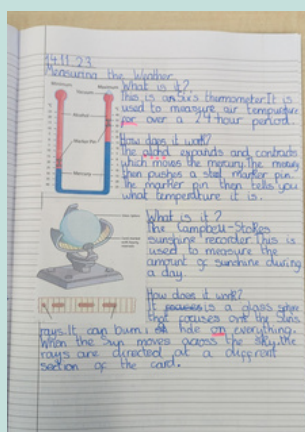 14.11.23
Measuring the Weather
Minimum
Maximum
Vacuum
Alcohol
Marker Pin
Mercury
What is it?
This is a Six's thermometer. It is
used to measure air tempurture
for over a 24-hour period.
How does it work?
The alchol expands and contracts
which moves the mercury. The mercury
then pushes a steel marker pin.
The marker pin then tells you
what temperature it is.
What is it?
The Campbell-Stokes
sunshine recorder. This is
used to measure the
amount of sunshine during
a day.
How does it work?
It focuses is a glass sphere
that focuses ont the suns
rays. It can burn a hole on everything.
When the sun moves across the sky, the
rays are directed at a different
section of the card.